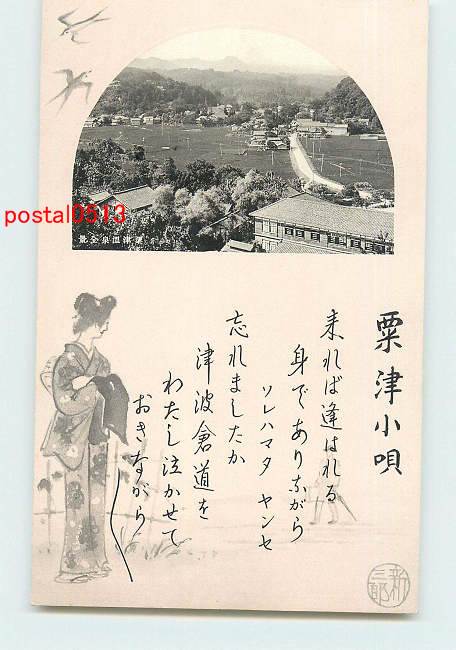 postal0513
粟津温泉全景
粟津小唄
来れば逢はれる
身でありながら
ソレハマタ ヤンセ
忘れましたか
津波倉道を
わたし泣かせて
おきながら
新三郎